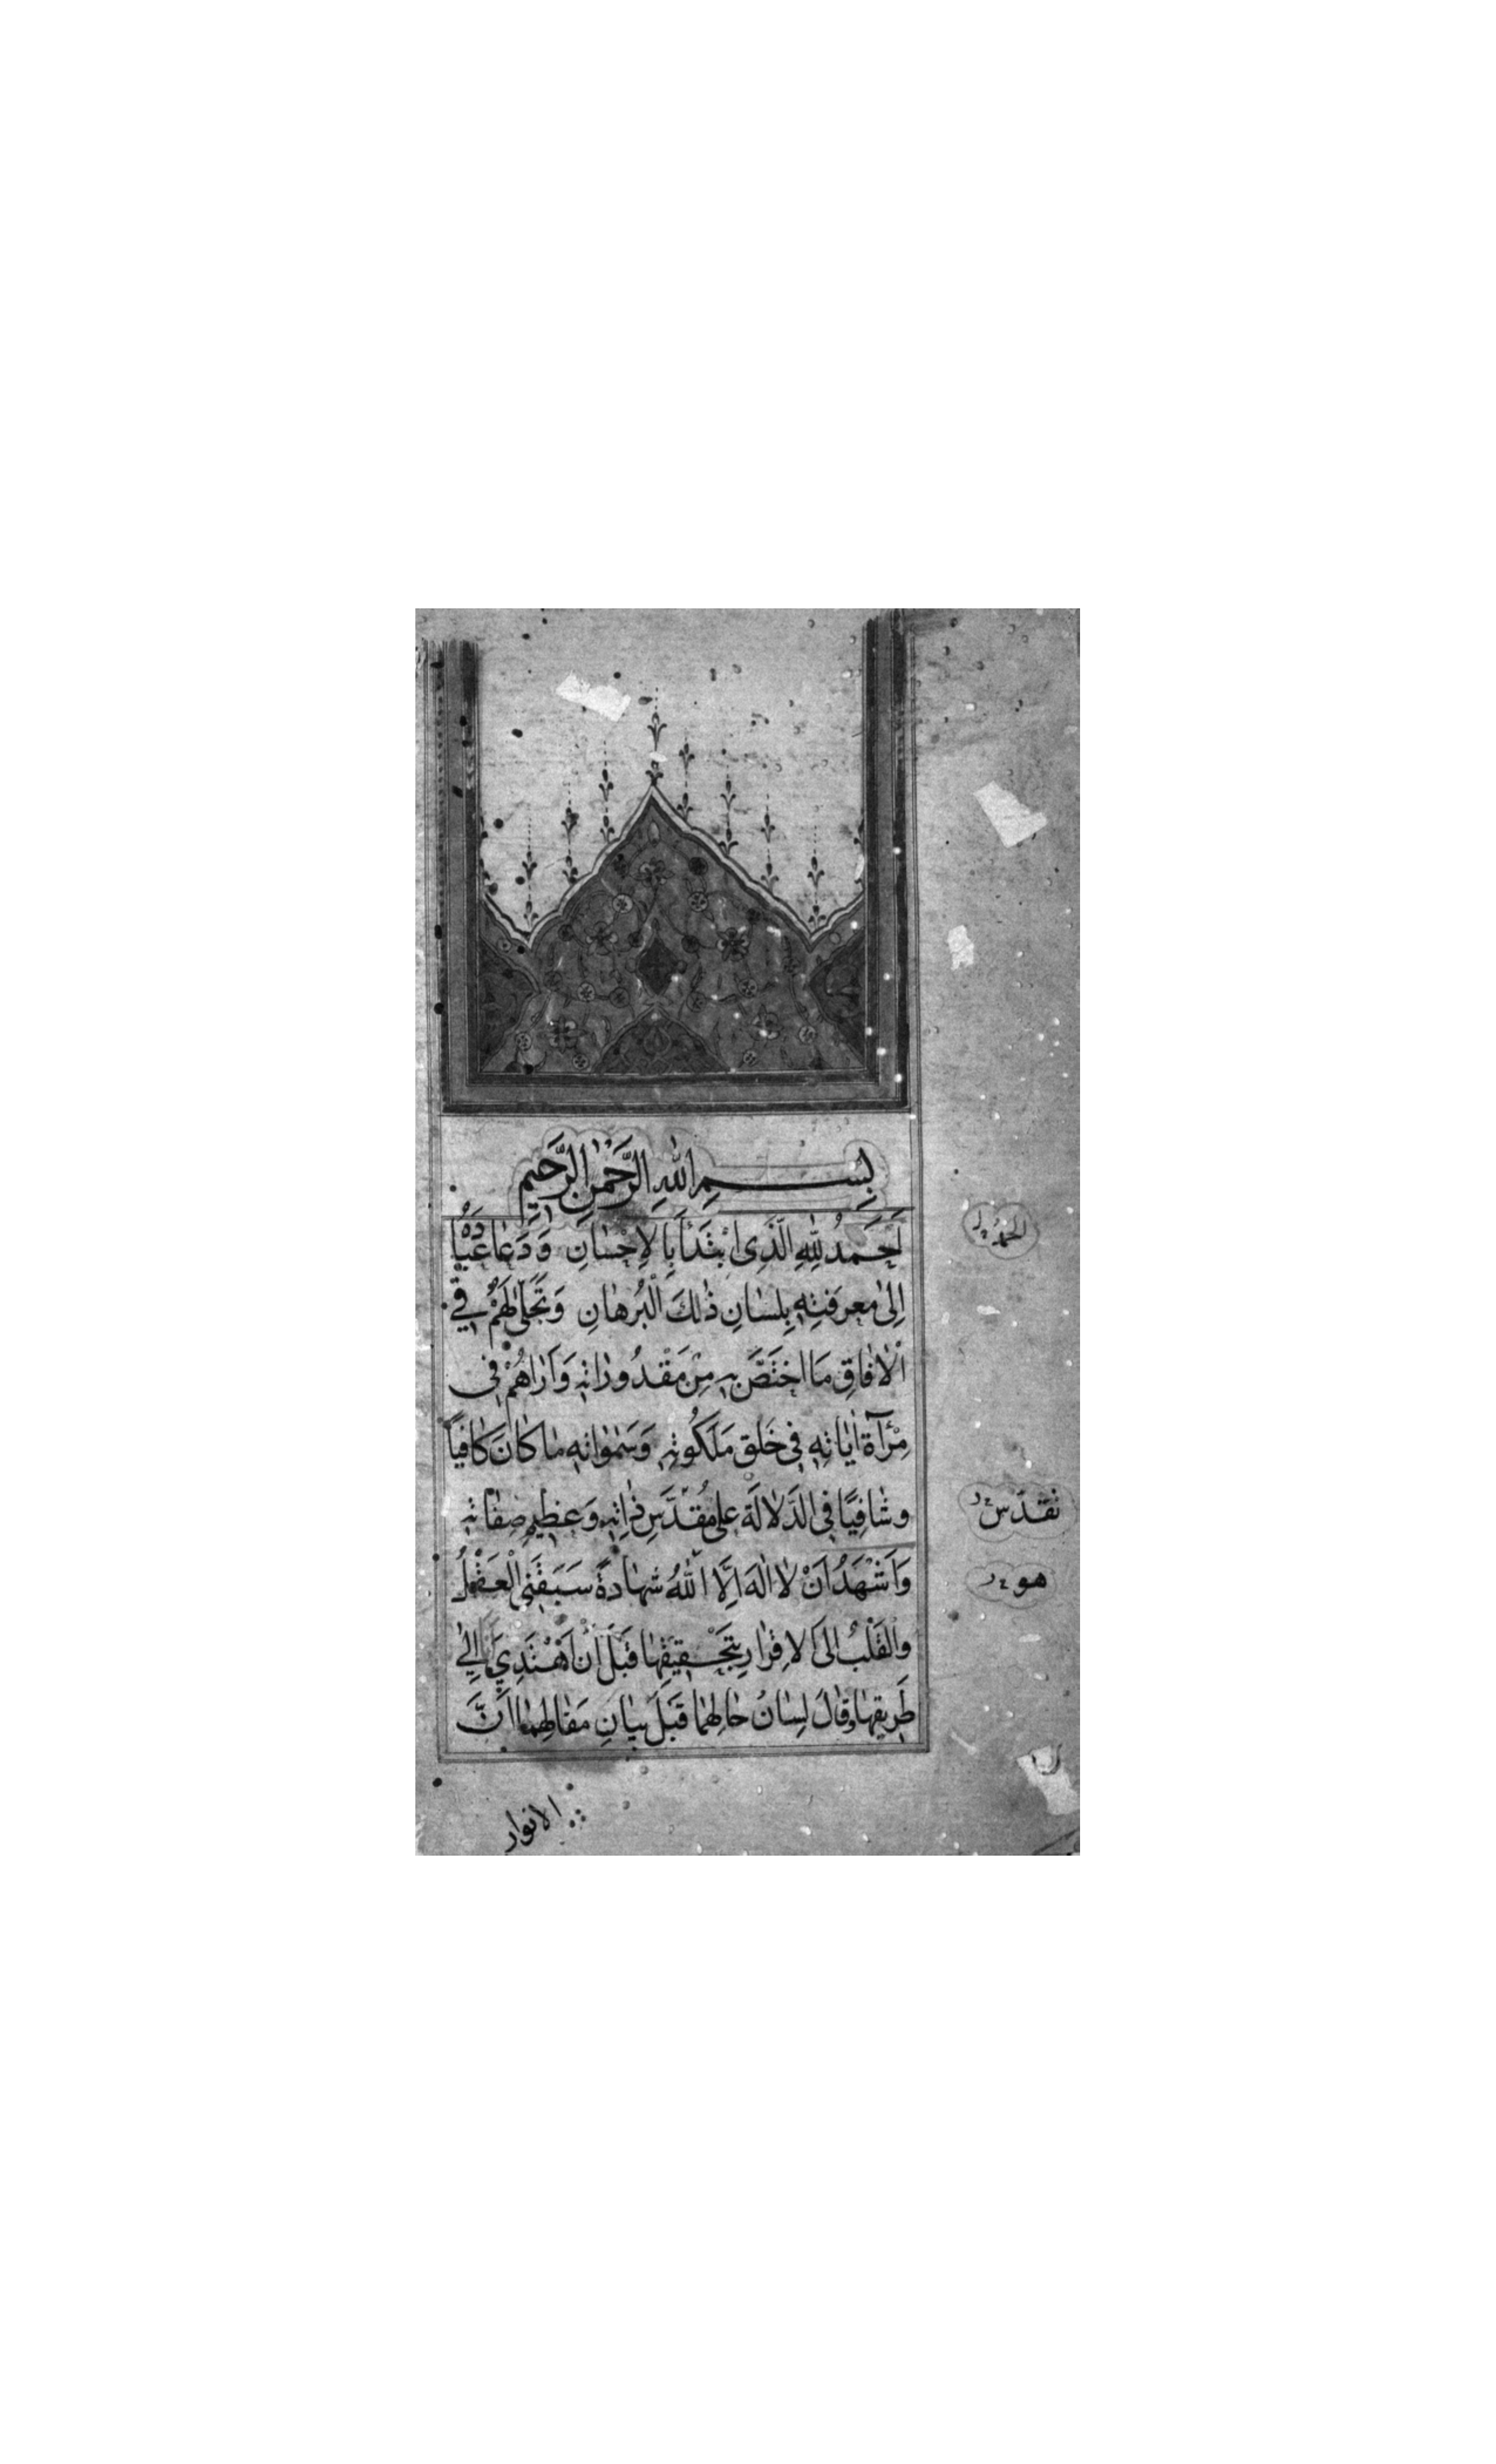 بِسْمِ اللهِ الرَّحْمٰنِ الرَّحِيمِ
اَلْحَمْدُ لِلّٰهِ الَّذِى ابْتَدَأَ بِالْاِحْسَانِ وَدَعَا عِبَادَهُ
اِلٰى مَعْرِفَتِهِ بِلِسٰانِ ذٰلِكَ الْبُرْهٰانِ وَتَجَلّٰى لَهُمْ فِي
الْاٰفٰاقِ مَا اخْتَصَّ بِهِ مِنْ مَقْدُورٰاتِهِ وَاَرٰاهُمْ فِى
مِرْآةِ اٰيٰاتِهِ فِى خَلْقِ مَلَكُوتِهِ وَسَمٰوٰاتِهِ مٰا كٰانَ كٰافِياً
وشٰافِيًا فِى الدَّلٰالَةِ عَلىٰ مُقَدَّسِ ذٰاتِهِ وَعَظِيمِ صِفٰاتِهِ
وَاَشْهَدُ اَنْ لٰا اِلٰهَ اِلَّا اللّٰهُ شَهٰادَةً سَبَقَنِى الْعَقْلُ
وَالْقَلْبُ اِلَى الْاِقْرٰارِ بِتَحْقِيقِهٰا قَبْلَ اَنْ اَهْتَدِيَ اِلٰي
طَرِيقِهٰا وَقٰالَ لِسٰانُ حٰالِهِمٰا قَبْلَ بَيٰانِ مَقٰالِهِمٰا اَنَّ
الحمد
تقدّس
هو
الانوار